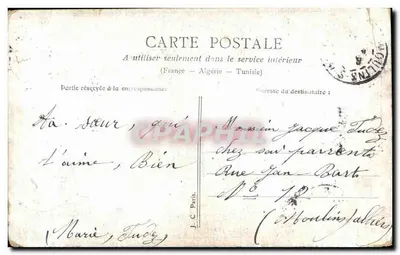 CARTE POSTALE
A utiliser seulement dans le service intérieur
(France - Algérie - Tunisie)
Partie réservée à la correspondance
Adresse du destinataire :
MOULINS
Ta sœur, qui
t'aime, Bien
Marie,
Monsieur Jacque
chez soi parrents
Rue Jan-Bart
N° 12
(Moulins) allier
J. C. Paris.
CPAPHIL